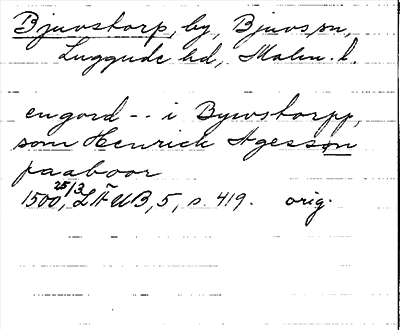 Bjuvstorp, by, Bjuvs sn,
Luggude hd, Malm. l.
engord -- i Bywstorpp,
som Henrick Agesson
paaboor
1500 25/3, LÄUB, 5, s. 419. orig.